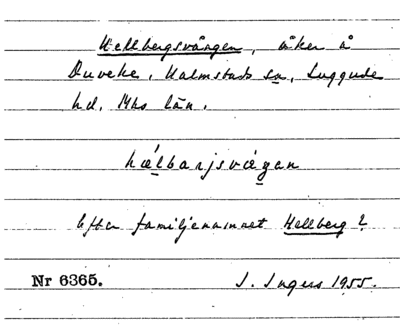 Hellbergsvången, åker å
Duveke, Halmstads sn, Luggude
hd, Mhs län.
hɑ́lbarjsvɑ́ŋan
Efter familjenamnet Hellberg?
Nr 6365. I. Ingers 1955.